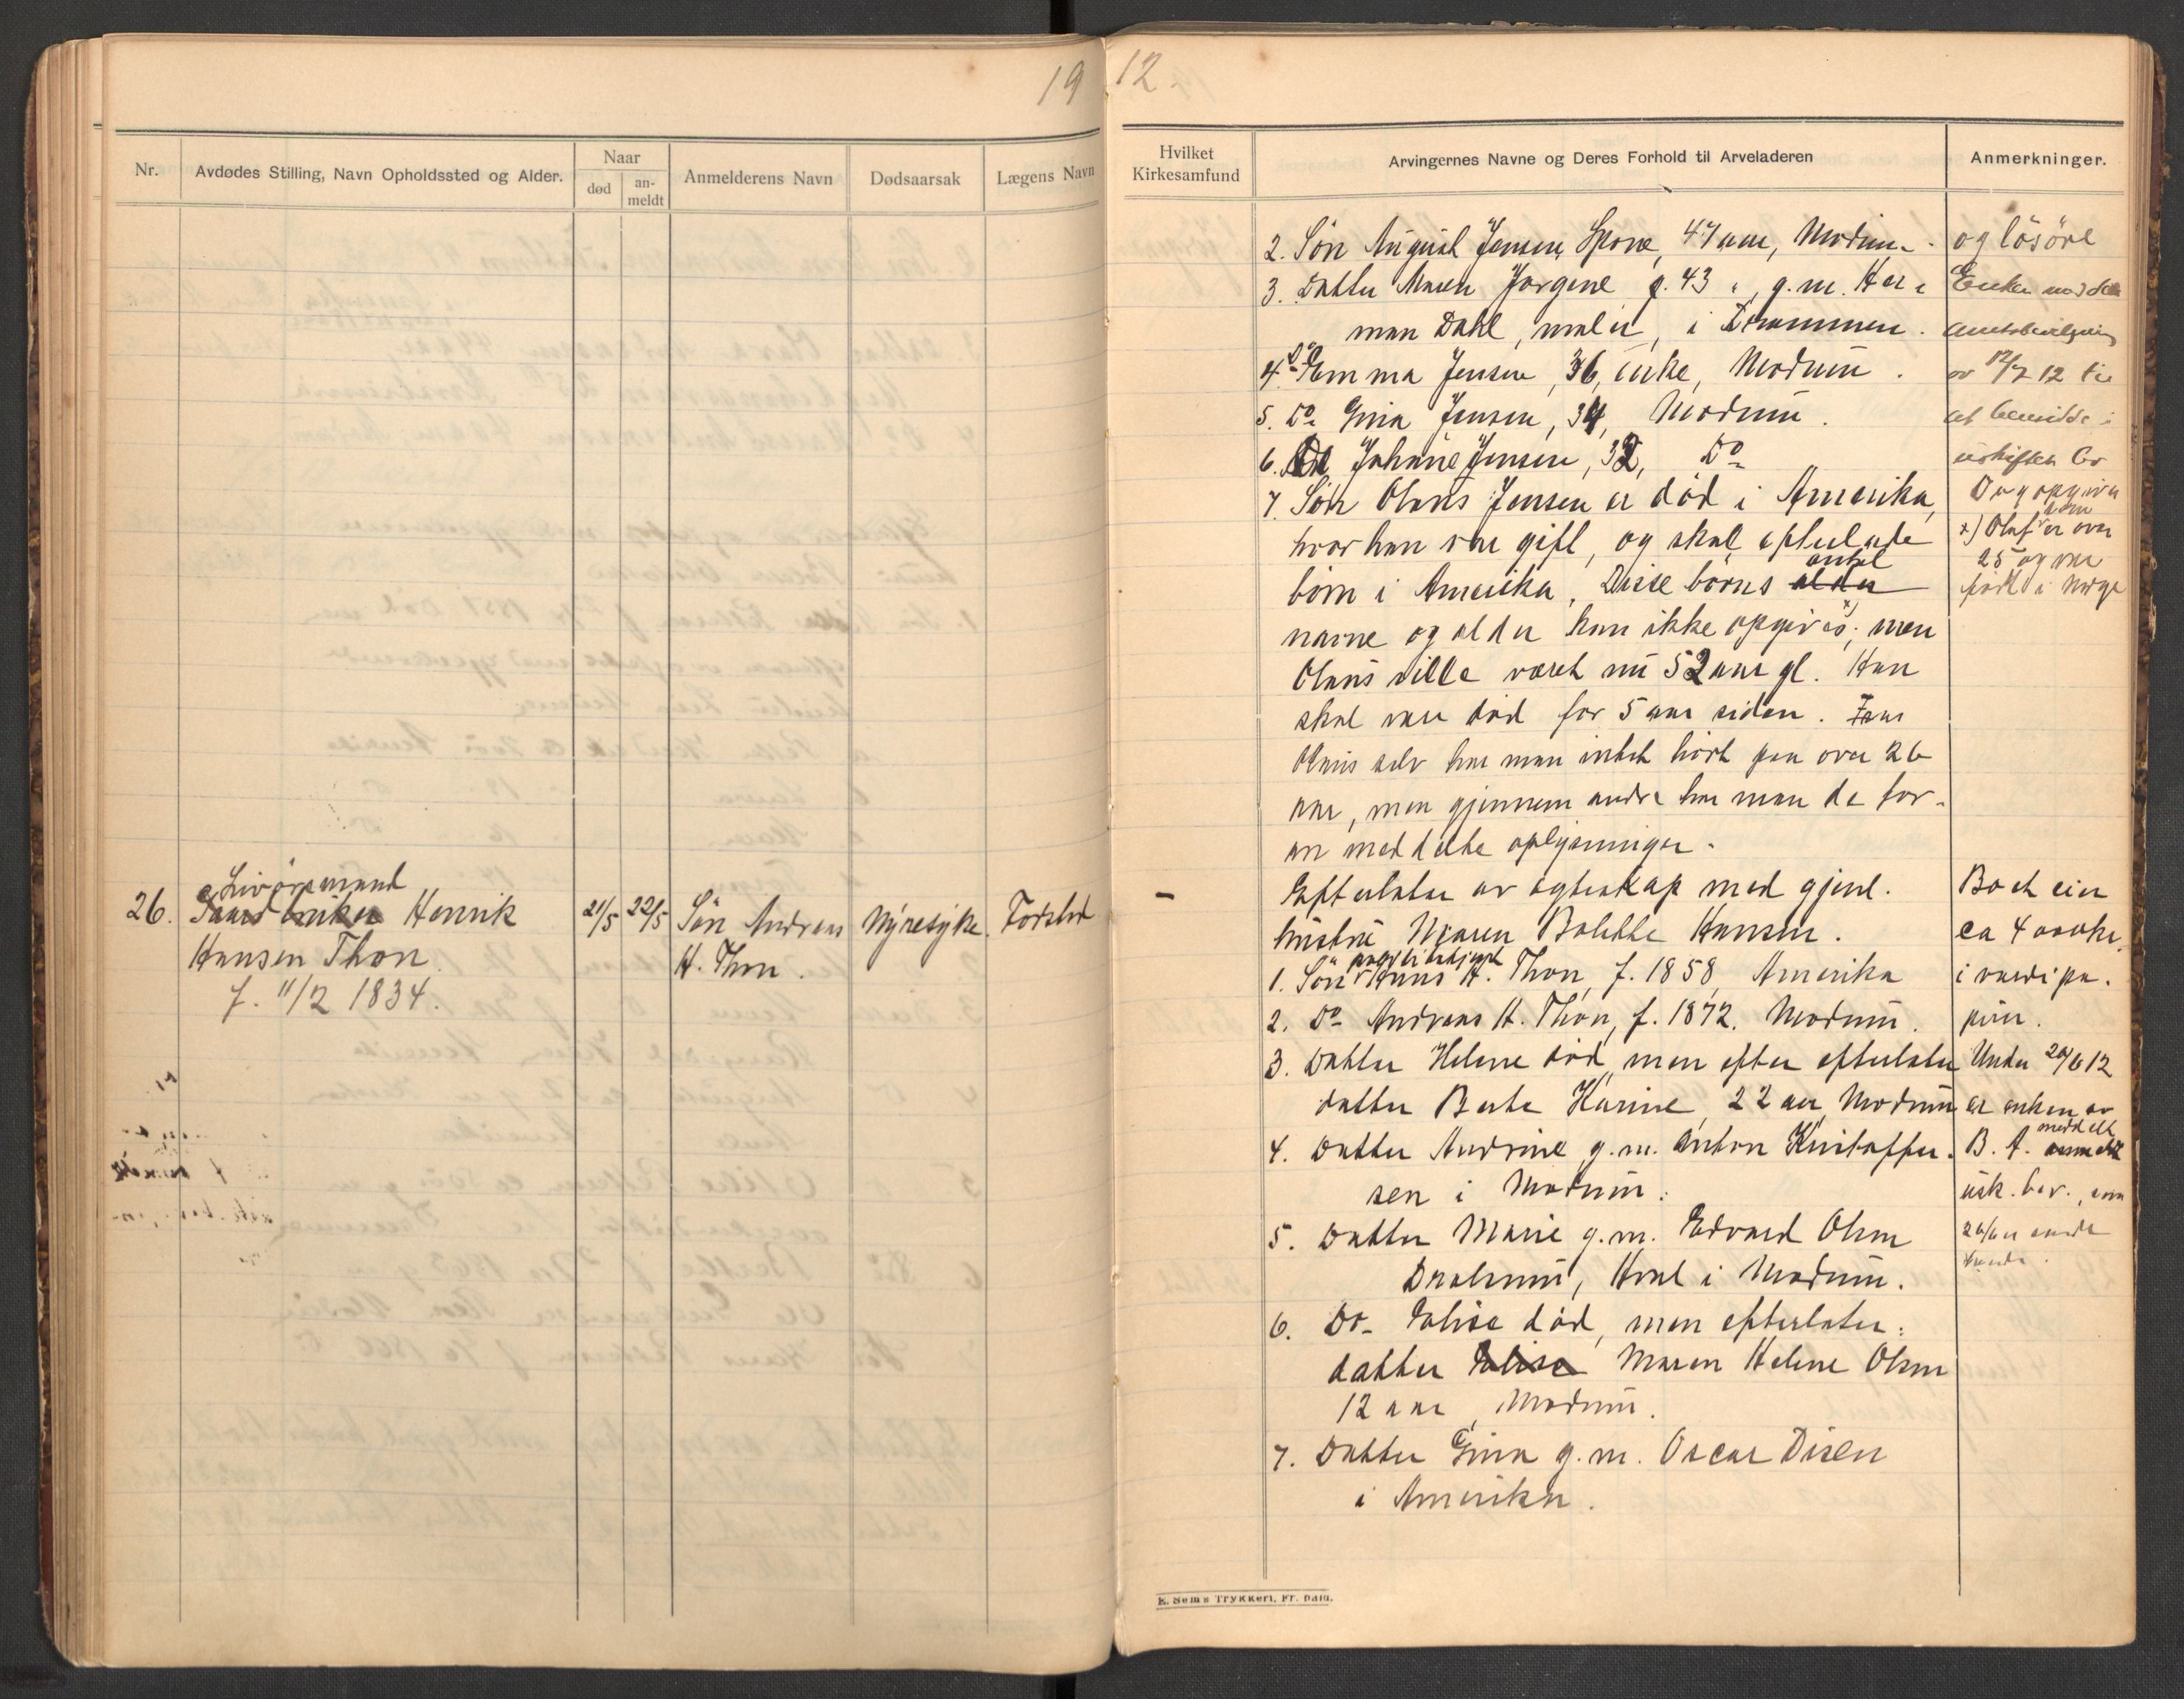 19
12
Nr.
Avdødes Stilling, Navn Opholdssted og Alder.
Naar
død
an-
meldt
Anmelderens Navn
Dødsaarsak
Lægens Navn
Hvilket
Kirkesamfund
Arvingernes Navne og Deres Forhold til Arveladeren
Anmerkninger.
2. Sön August Jensen Spone, 47 aar, Modum.
3. Datter Maren Jorgine g. 43 " , g. m. Her-
man Dahl, maler, i Drammen.
4. Do Emma Jensen, 36, enke, Modum.
5. Do Gina Jensen, 34, Modum.
6. Johane Jensen, 32, Do
7. Sön Olaus Jensen er död i Amerika,
hvor han var gift, og skal efterlade
antal
börn i Amerika. Disse börns alder
navne og alder kan ikke opgives x); men
Olaus ville været nu 52 aar gl. Han
skal være död for 5 aar siden. Fra
Olaus selv har man intet hört paa over 26
aar, men gjennem andre har man de for-
an meddelte oplysninger.
og lösöre
Enken meddelt
amtsbevilgning
av 12/7 12 til
at hensidde i
uskiftet bo
Dog opgives
som
x) Olaf er over
25 og var
födt i Norge
26.
Livöresmand
Gaardbruker Henrik
Hansen Thon
f. 11/2 1834.
21/5
22/5
Sön Andreas
H. Thon.
Nyresyke.
Fodstad
-
Efterlater av egteskap med gjenl.
hustru Maren Bolette Hansen.
1. Sön Hans H. Thon, f. 1858, Amerika
2. Do Andreas H. Thon, f. 1872. Modum.
3. Datter Helene död, men efter efterlater
datter Berte Karine, 22 aar, Modum
4. Datter Andrine g. m. Anton Kristoffer-
sen i Modum.
5. Datter Marie g. m. Edvard Olsen
Drolsum, Hval i Modum.
6. Do- Elise död, men efterlater:
datter Elise Maren Helene Olsen
12 aar, Modum.
7. Datter Gina g. m. Oscar Disen
i Amerika.
Boet eier
ca 4 000 kr.
i værdipa-
pirer.
Under 20/6 12
er enken av
meddelt
B. A. anmeldt
usk. bev., som
E. Sems Trykkeri, Fr. hald.